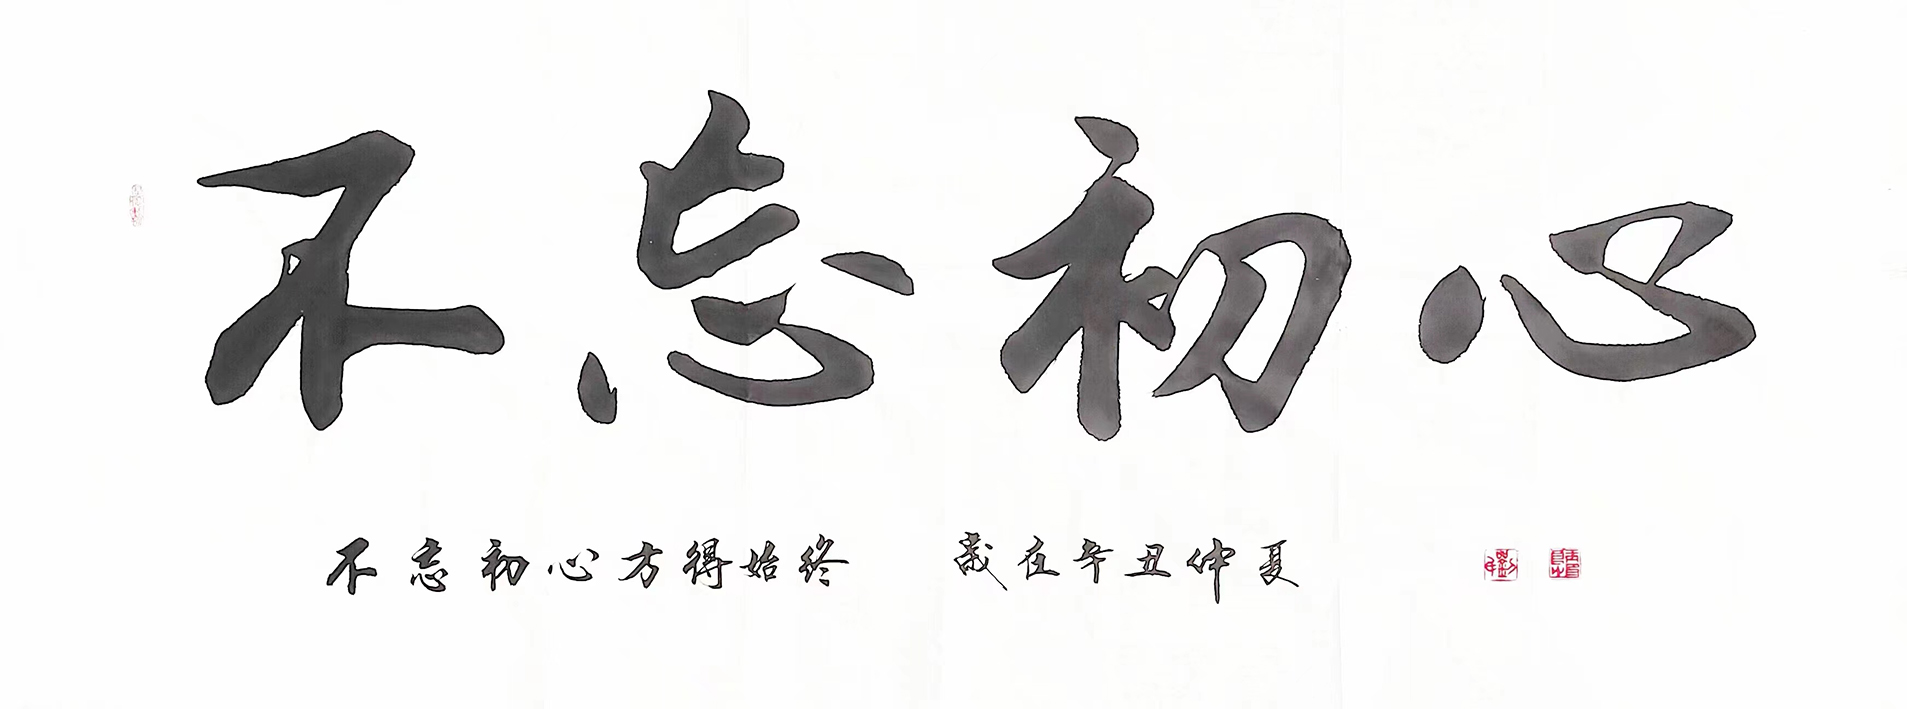 不忘初心
不忘初心方得始终 歲在辛丑仲夏